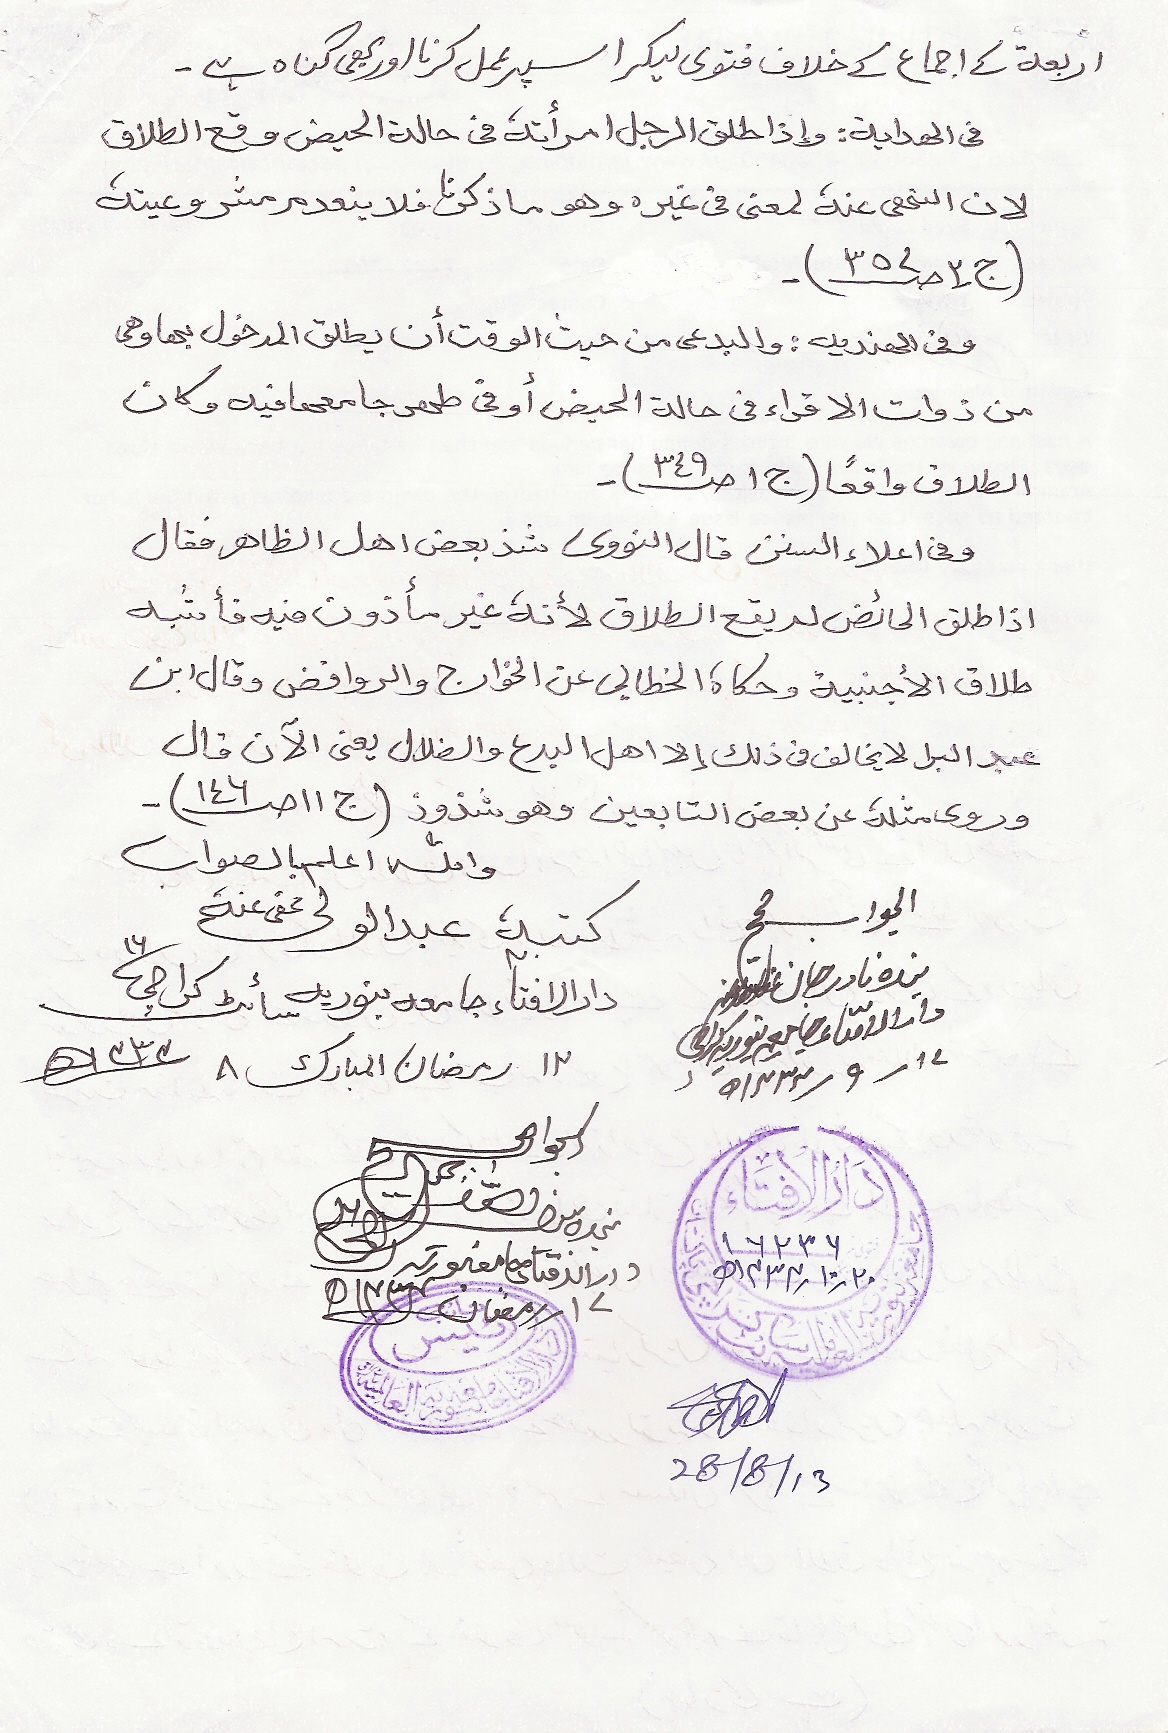 اربعة کے اجماع کے خلاف فتوی لیکر اسپر عمل کرنا اور بھی گناہ ہے۔
فی الهداية: وإذا طلق الرجل امرأتهٗ فی حالة الحيض وقع الطلاق
لان النهی عنهٗ لمعنی فی غيره وهو ما ذكرنا فلا ينعدم مشروعيتهٗ
(ج ٣ ص ٣٥٧)۔
وفی الهنديه: والبدعی من حيث الوقت أن يطلق المدخول بها وهی
من ذوات الاقراء فی حالة الحيض أو فی طهر جامعها فيه وكان
الطلاق واقعًا (ج ١ ص ٣٤٩)۔
وفی اعلاء السنن قال النووی شذ بعض اهل الظاهر فقال
اذا طلق الحائض لم يقع الطلاق لأنهٗ غير مأذون فيه فأشبه
طلاق الأجنبية وحكاهٗ الخطابی عن الخوارج والروافض وقال ابن
عبد البر لا يخالف فی ذلك إلا اهل البدع والضلال يعنی الآن قال
وروی مثلهٗ عن بعض التابعين وهو شذوذ (ج ١١ ص ١٤٦)۔
والله اعلم بالصواب
کتبهٗ عبدالولی عفی عنهٗ
دارالافتاء جامعه بنوریه سائٹ کراچی ١٦
١٢ رمضان المبارک ١٤٣٤ھ
الجواب صحیح
بنده نادر جان
دارالافتاء جامعه بنوریه کراچی
١٢ / ٩ / ١٤٣٤ھ
الجواب صحیح
دارالافتاء جامعه بنوریه
١٢ / رمضان ١٤٣٤ھ
دَارُ الْاِفْتَاء
١٦٢٣٦
٢٠/١٠/١٤٣٤ھ
رئيس
دار الافتاء جامعه بنوريه العالمية
28/8/13